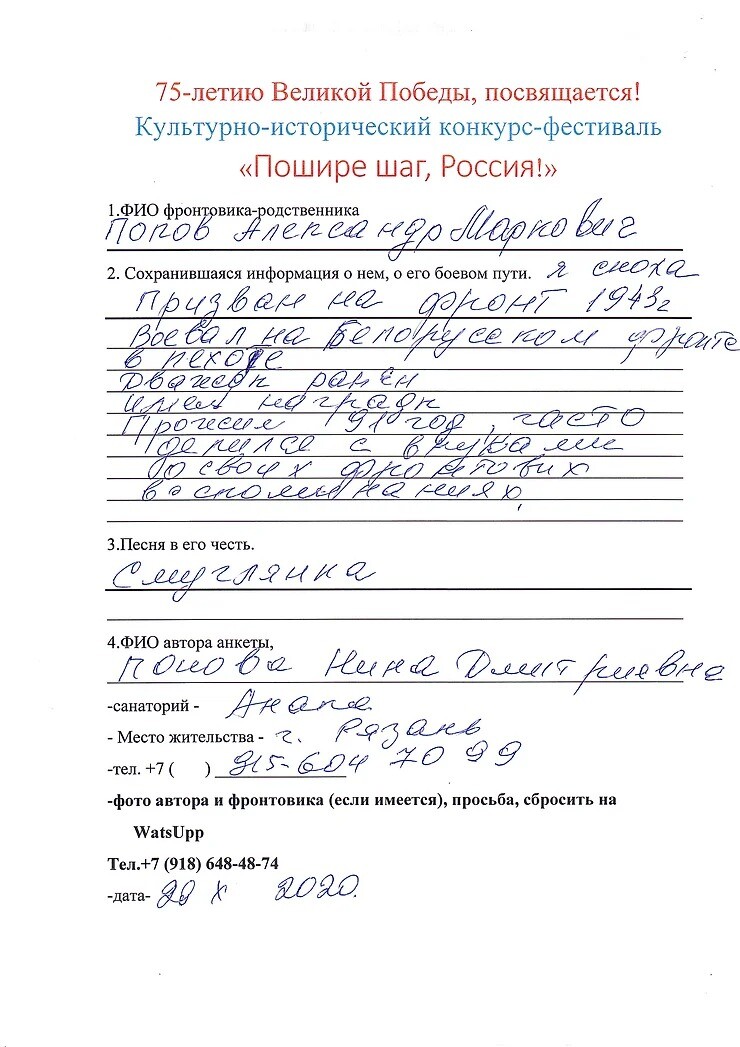 75-летию Великой Победы, посвящается!
Культурно-исторический конкурс-фестиваль
«Пошире шаг, Россия!»
1.ФИО фронтовика-родственника
Попов Александр Маркович
2. Сохранившаяся информация о нем, о его боевом пути. я сноха
Призван на фронт 1943г
Воевал на Белорусском фронте
в пехоте
Дважды ранен
имел награды
Прожил 91 год, часто
делился с внуками
о своих фронтовых
воспоминаниях,
3.Песня в его честь.
Смуглянка
4.ФИО автора анкеты,
Попова Нина Дмитриевна
-санаторий - Анапа
- Место жительства - г. Рязань
-тел. +7 ( ) 915-604 70 99
-фото автора и фронтовика (если имеется), просьба, сбросить на
WatsUpp
Тел.+7 (918) 648-48-74
-дата- 22 X 2020.